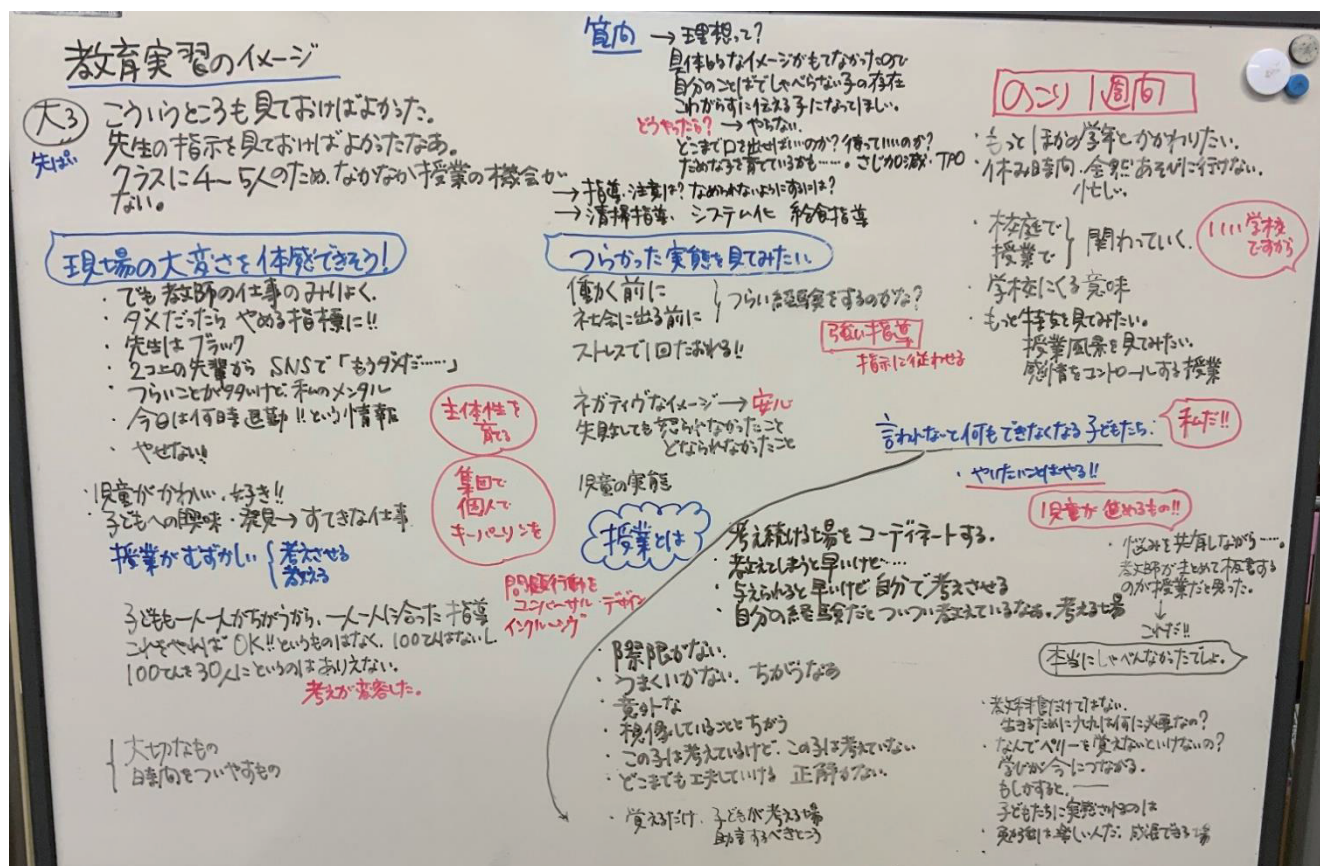 教育実習のイメージ
大3
先ぱい
こういうところも見ておけばよかった。
先生の指示を見ておけばよかったなあ。
クラスに4〜5人のため、なかなか授業の機会が
ない。
現場の大変さを体感できそう!
・でも教師の仕事のみりょく、
・ダメだったら やめる指標に!!
・先生はブラック
・2コ上の先輩から SNSで「もうダメだ……」
・つらいことが多いけど、私のメンタル
・今日は何時退勤!!という情報
・やせない!!
・児童がかわいい、好き!!
・子どもへの興味・発見→すてきな仕事
授業がむずかしい
考えさせる
教える
主体性を
育てる
集団で
個人で
キーパーソンを
問題行動を
ユニバーサル・デザイン
インクルーシブ
子ども一人一人がちがうから、一人一人に合った指導
これをやれば OK!!というものはなく、100てんはないし
100てんを30人にというのはありえない。
考えが変容した。
大切なもの
時間をついやすもの
→理想って?
具体的なイメージがもてなかったので
自分のことばでしゃべらない子の存在
こわがらずに伝える子になってほしい。
どうやったら?→やらない、
どこまで口を出せばいいのか?待っていいのか?
だめな子を育てているかも……。さじ加減・TPO
→指導、注意は?なめられないようにするには?
→清掃指導、システム化 給食指導
つらかった実態を見てみたい
働く前に
社会に出る前に
つらい経験をするのかな?
ストレスで1回たおれる!!
強い指導
指示に従わせる
ネガティヴなイメージ→安心
失敗しても怒られなかったこと
どなられなかったこと
児童の実態
授業とは
考え続ける場をコーディネートする。
・教えてしまうと早いけど…
・与えられると早いけど自分で考えさせる
・自分の経験だとついつい教えているなあ。考える場
・際限がない、
・うまくいかない、ちがうなあ
・意外な
・想像していることとちがう
・この子は考えているけど、この子は考えていない
・どこまでも工夫していける 正解がない、
・覚えるだけ、子どもが考える場
助言するべきところ
のこり1週間
・もっとほかの学年とかかわりたい。
・休み時間、全然あそびに行けない。
忙し。
・校庭で
授業で
関わっていく、
いい学校
ですから
・学校にくる意味
・もっと特支を見てみたい。
授業風景を見てみたい。
感情をコントロールする授業
言われないと何もできなくなる子どもたち、
私だ!!
・やりたいことはやる!!
児童が進めるもの!!
・悩みを共有しながら……。
教師がまとめて板書する
のが授業だと思った。
これだ!!
本当にしゃべんなかったでしょ。
・教科書だけではない、
生きるために九九は何に必要なの?
・なんでペリーを覚えないといけないの?
学びが今につながる。
もしかすると、――
子どもたちに実感させるのは
・勉強は楽しいんだ、成長できる場